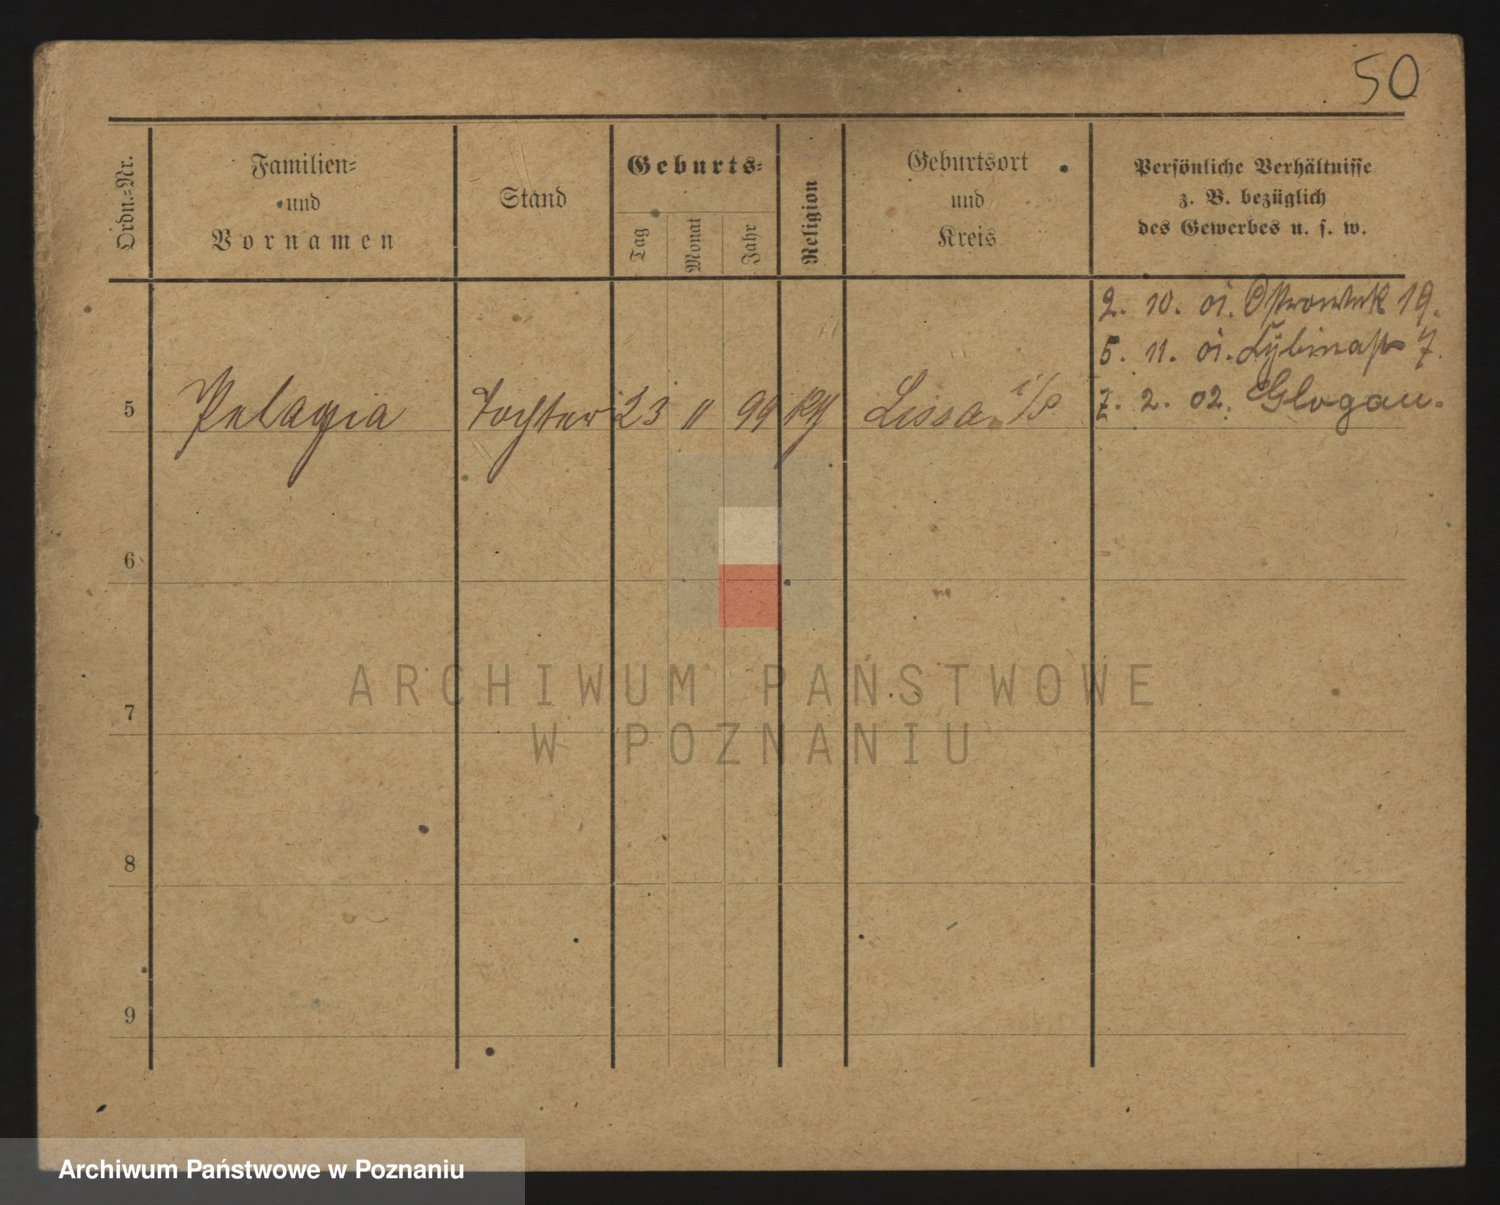 50
Ordn.=Nr.
Familien=
und
Vornamen
Stand
Geburts=
Tag
Monat
Jahr
Religion
Geburtsort
und
Kreis
Persönliche Verhältnisse
z. B. bezüglich
des Gewerbes u. s. w.
2. 10. 01. Ostrowek 19.
5. 11. 01. Cybinastr 7.
5 Pelagia Tochter 23 11 99 Lissa i/P 7. 2. 02. Glogau.
6
7
8
9
ARCHIWUM PAŃSTWOWE
W POZNANIU
Archiwum Państwowe w Poznaniu